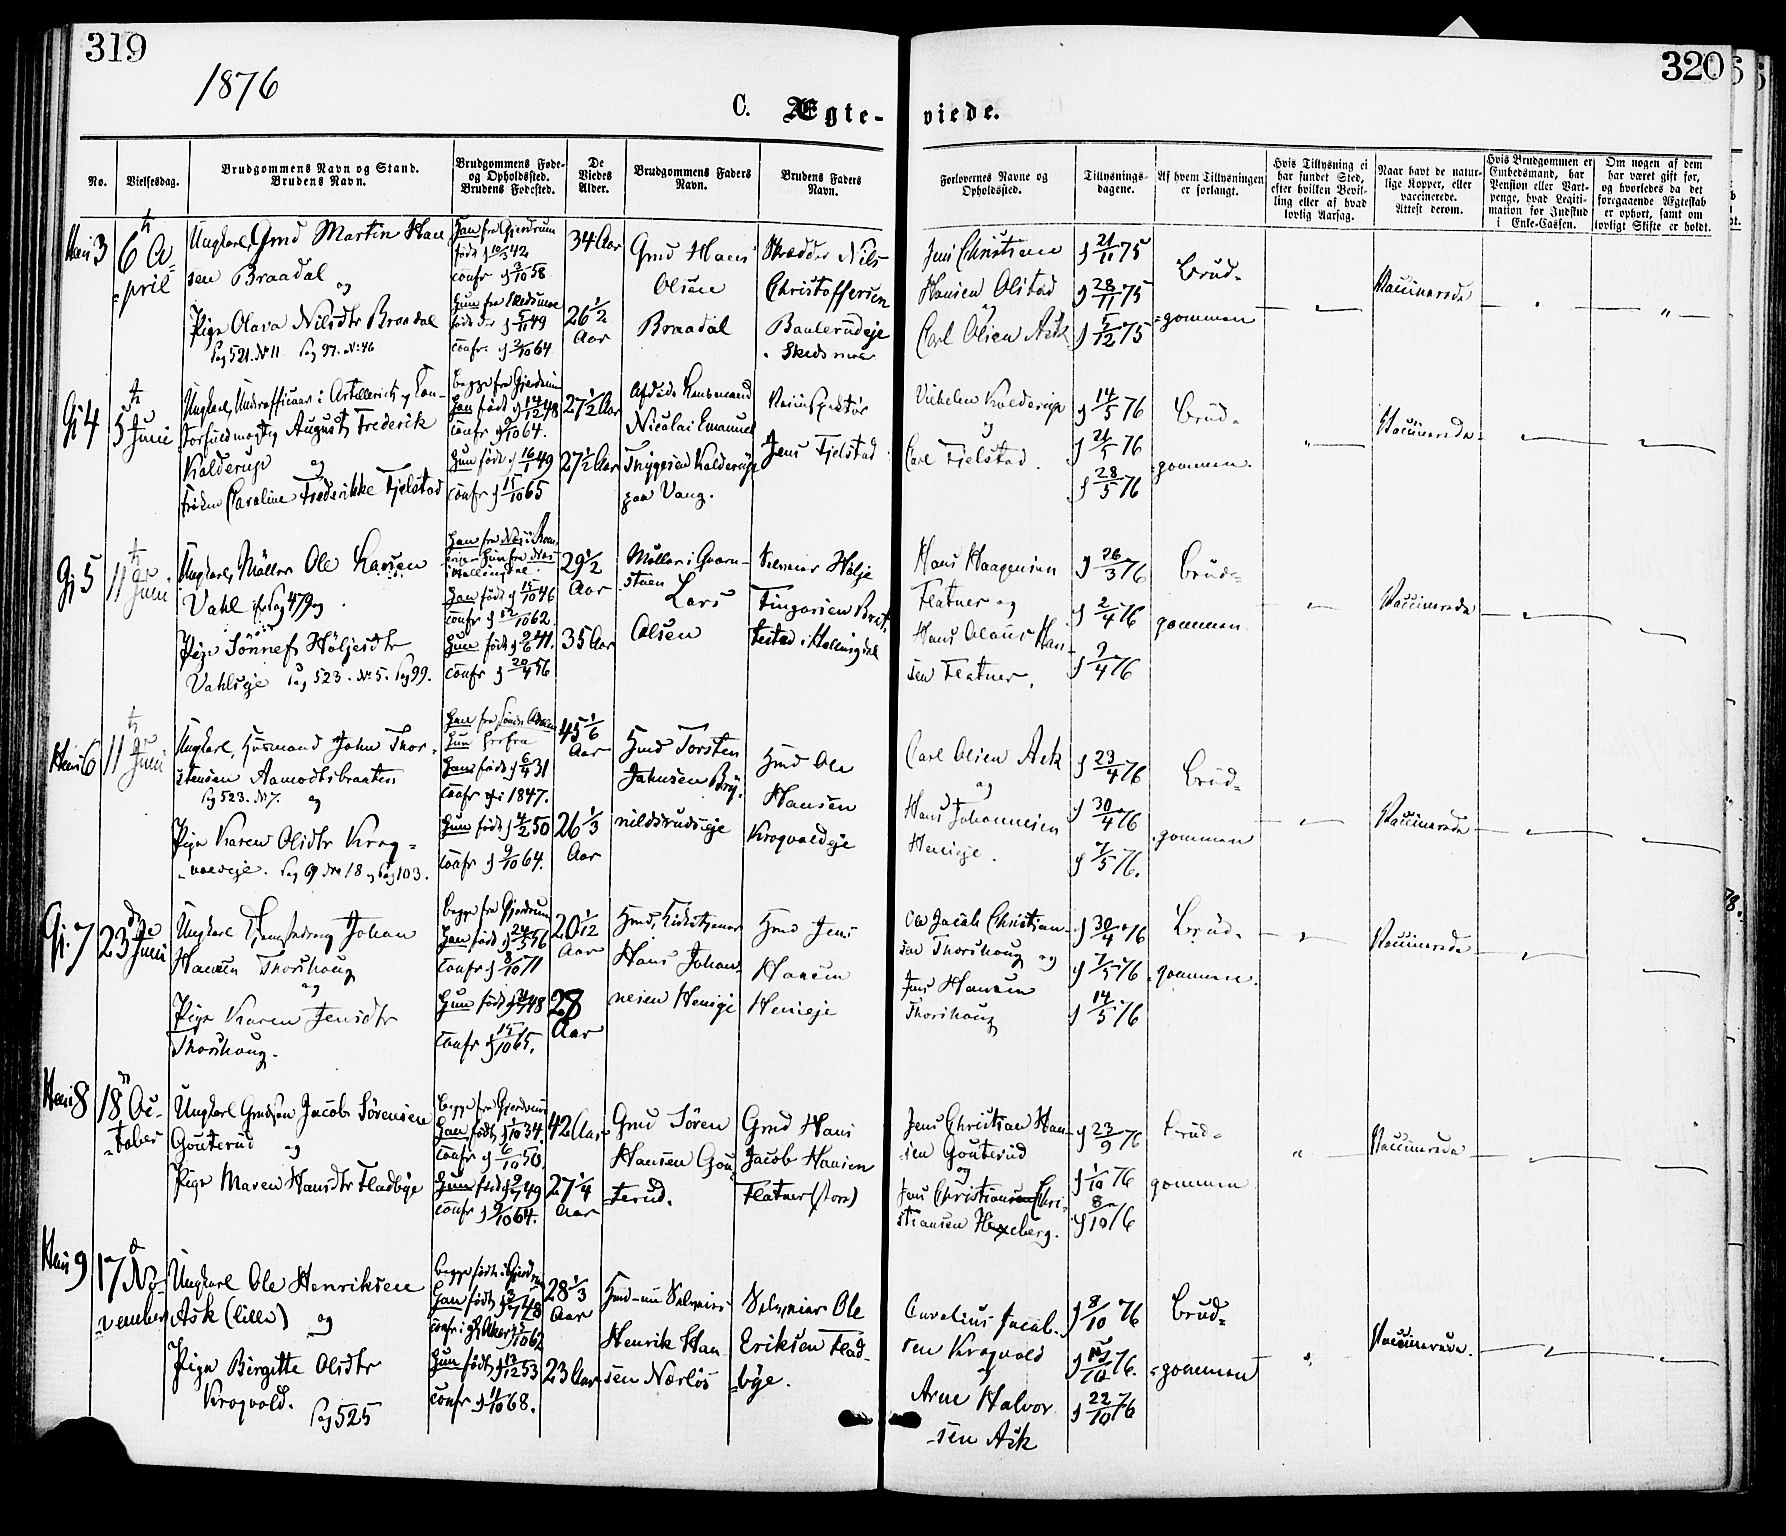 319
320
1876
C. Ægte-
viede.
No.
Vielsesdag.
Brudgommens Navn og Stand.
Brudens Navn.
Brudgommens Føde-
og Opholdssted.
Brudens Fødested.
De
Viedes
Alder.
Brudgommens Faders
Navn.
Brudens Faders
Navn.
Forlovernes Navne og
Opholdssted.
Tillysnings-
dagene.
Af hvem Tillysningen
er forlangt.
Hvis Tillysning ei
har fundet Sted,
efter hvilken Bevil-
ling eller af hvad
lovlig Aarsag.
Naar havt de natur-
lige Kopper, eller
vaccinerede.
Attest derom.
Hvis Brudgommen er
Embedsmand, har
Pension eller Vart-
penge, hvad Legiti-
mation for Indskud
i Enke-Cassen.
Om nogen af dem
har været gift før,
og hvorledes da det
foregaaende Ægteskab
er ophørt, samt om
lovligt Skifte er holdt.
3
6 A-
pril
Ungkarl, Gmd Martin Han
sen Braadal
og
Pige Olava Nilsdtr Braadal
Pag 521. No 11 Pag 97. No 46
Han fra Gjerdrum
født
42
confr 58
Hun fra Skedsmoe
49
confr 64
34 Aar
26 1/2
Aar
Gmd Hans
Olsen
Braadal
Skrædder Nils
Christoffersen
Skedsmoe
Jens Christian
Hansen Olstad
og
Carl Olsen Ask
21/11 75
28/11 75
5/12 75
Brud-
gommen
Vaccinerede
Gj 4
5 Juni
Ungkarl, Underofficeer i Artilleriet,
August Frederik
Kolderup
og
Frøken Caroline Frederikke Fjelstad
begge fra Gjerdrum
Han født 14/12 48
confr 64.
Hun født 16/1 49
confr 15/10 65
27 1/2 Aar
27 1/2 Aar
Nicolai Emanuel
Kolderup
paa Vang.
Jens Fjelstad
Vilhelm Kolderup
og
Carl Fjelstad.
14/5 76
21/5 76
28/5 76
Brud-
gommen.
Vaccinerede
Gj 5
11 Juni
Ungkarl, Møller Ole Larsen
Vahl Pag 479 og
Pige Sønnef Høljesdtr
Vahlseje Pag 523. No 5. Pag 99.
Han født 15/10 46
confr 12/10 62.
Hun født 2/6 41.
confr 20/4 56
29 1/2
Aar
35 Aar
Møller i Qvern-
stuen
Lars
Olsen
Hølje
Hans Haagensen
Flatner og
Hans Olaus Han-
sen Flatner.
26/3 76
2/4 76
9/4 76
Brud-
gommen.
Vaccinerede
6
11 Juni
Ungkarl, Husmand John Thor-
stensen Aamodtsbraaten
Pag 523. No 7. og
Pige Karen Olsdtr Krog-
voldeje. Pag 69 No 18 og Pag 103.
Hun herfra
Han født 6/4 31
confr 1847.
Hun født 4/2 50
confr 9/10 64.
45 1/6
Aar
26 1/3
Aar
Hmd Torsten
Johnsen Bry-
nildsrudseje
Hmd Ole
Hansen
Krogvoldeje
Carl Olsen Ask
og
Hans Johannesen
Henieje.
23/4 76
30/4 76
7/5 76.
Brud-
gommen
Vaccinerede
Gj. 7
23de Juni
Ungkarl Johan
Hansen Thorshoug
og
Pige Karen Jensdtr
Thorshoug.
begge fra Gjerdrum
Han født 24/5 56
Confr 8/10 71
Hun født 48
confr 15/10 65.
20 1/12
Aar
28
Aar
Hmd,
Hans Johan-
nesen Henieje
Hmd Jens
Hansen
Henieje
Ole Jacob Christian-
sen Thorshoug og
Jens Hansen
Thorshoug
30/4 76
7/5 76
14/5 76
Brud-
gommen.
Vaccinerede
8
18 Oc-
tober
Ungkarl Gmdsøn Jacob Sørensen
Gouterud og
Pige Maren Hansdtr Fladbye
begge fra Gjerdrum
Han født 1/10 34.
confr 6/10 50.
Hun født 49
confr 9/10 64.
42 Aar
27 1/4
Aar
Gmd Søren
Hansen Gou-
terud.
Gmd Hans
Jacob Hansen
Flatner (store)
Jens Christian Han-
sen Gouterud
og
Jens Christiansen Chri-
stiansen Hexeberg.
23/9 76
1/10 76
8/10 76
Brud-
gommen
Vaccinerede
9
17 No-
vember
Ungkarl Ole Henriksen
Ask (lille) og
Pige Birgitte Olsdtr
Krogvold.
Pag 525
begge født i Gjerdrum
Han født 48
62
Hun født 13/12 53
confr 11/10 68.
28 1/3
Aar
23 Aar
Henrik Han
sen Nærløs
Selveier Ole
Eriksen Flad-
bye.
Carelius Jacob-
sen Krogvold
og
Arne Halvor
sen Ask
8/10 76
15/10 76.
22/10 76
Brud-
gommen
Vaccinerede.